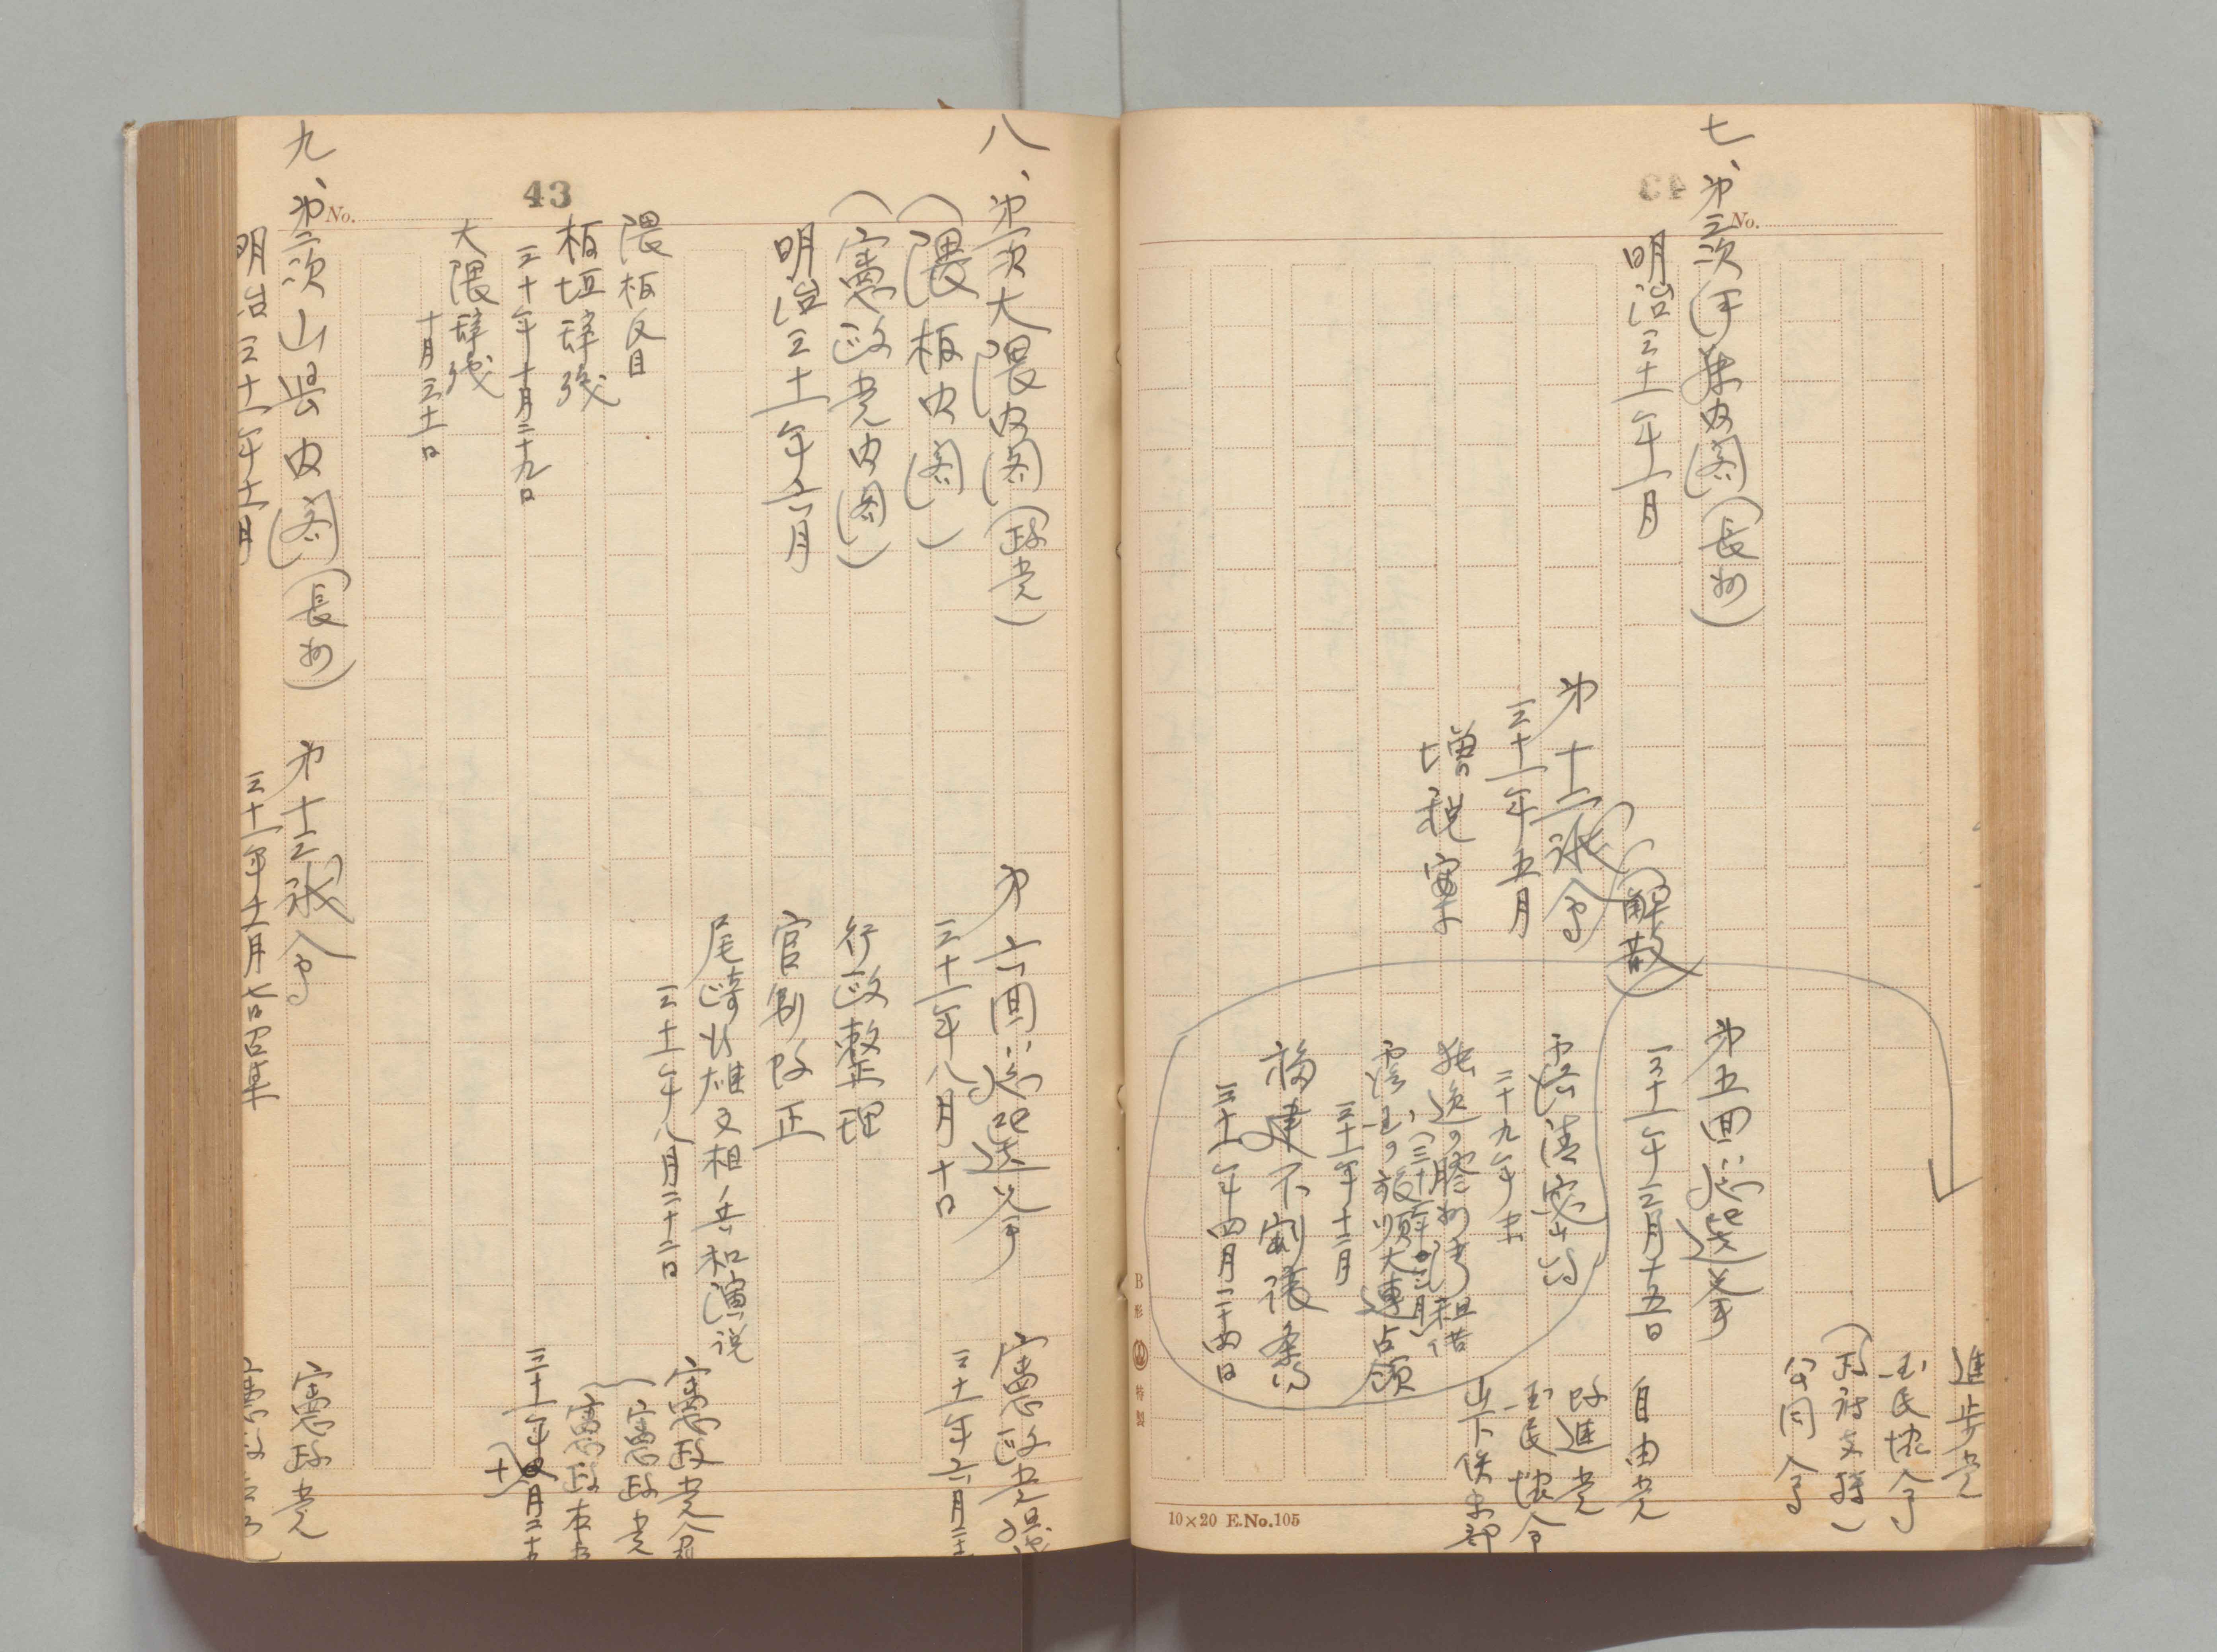 七、第三次伊藤内閣(長州)
明治三十一年一月
第十二議会(解散)
三十一年五月
増税案
第五回総選挙
三十一年三月十五日
露清密約
二十九年末
独逸の膠州湾租借
露国の旅順大連占領
三十一年十二月
福建不割譲条約
三十一年四月二十四日
進歩党
国民協会
(政府支持)
公同会
自由党
改進党
国民協会
山下倶楽部
10×20 E.No.105
B形 特製
No.
43
No.
八、第一次大隈内閣(政党)
(隈板内閣)
(憲政党内閣)
明治三十一年六月
隈板反目
板垣辞職
三十年十月二十九日
大隈辞職
十月三十一日
第六回総選挙
三十一年八月十日
行政整理
官制改正
尾崎行雄文相共和演説
三十一年八月二十二日
憲政党
三十一年六月二
憲政党分
憲政党
憲政本
三十一年
九、第二次山県内閣(長州)
明治三十一年十一月
第十三議会
三十一年十一月
憲政党
憲政